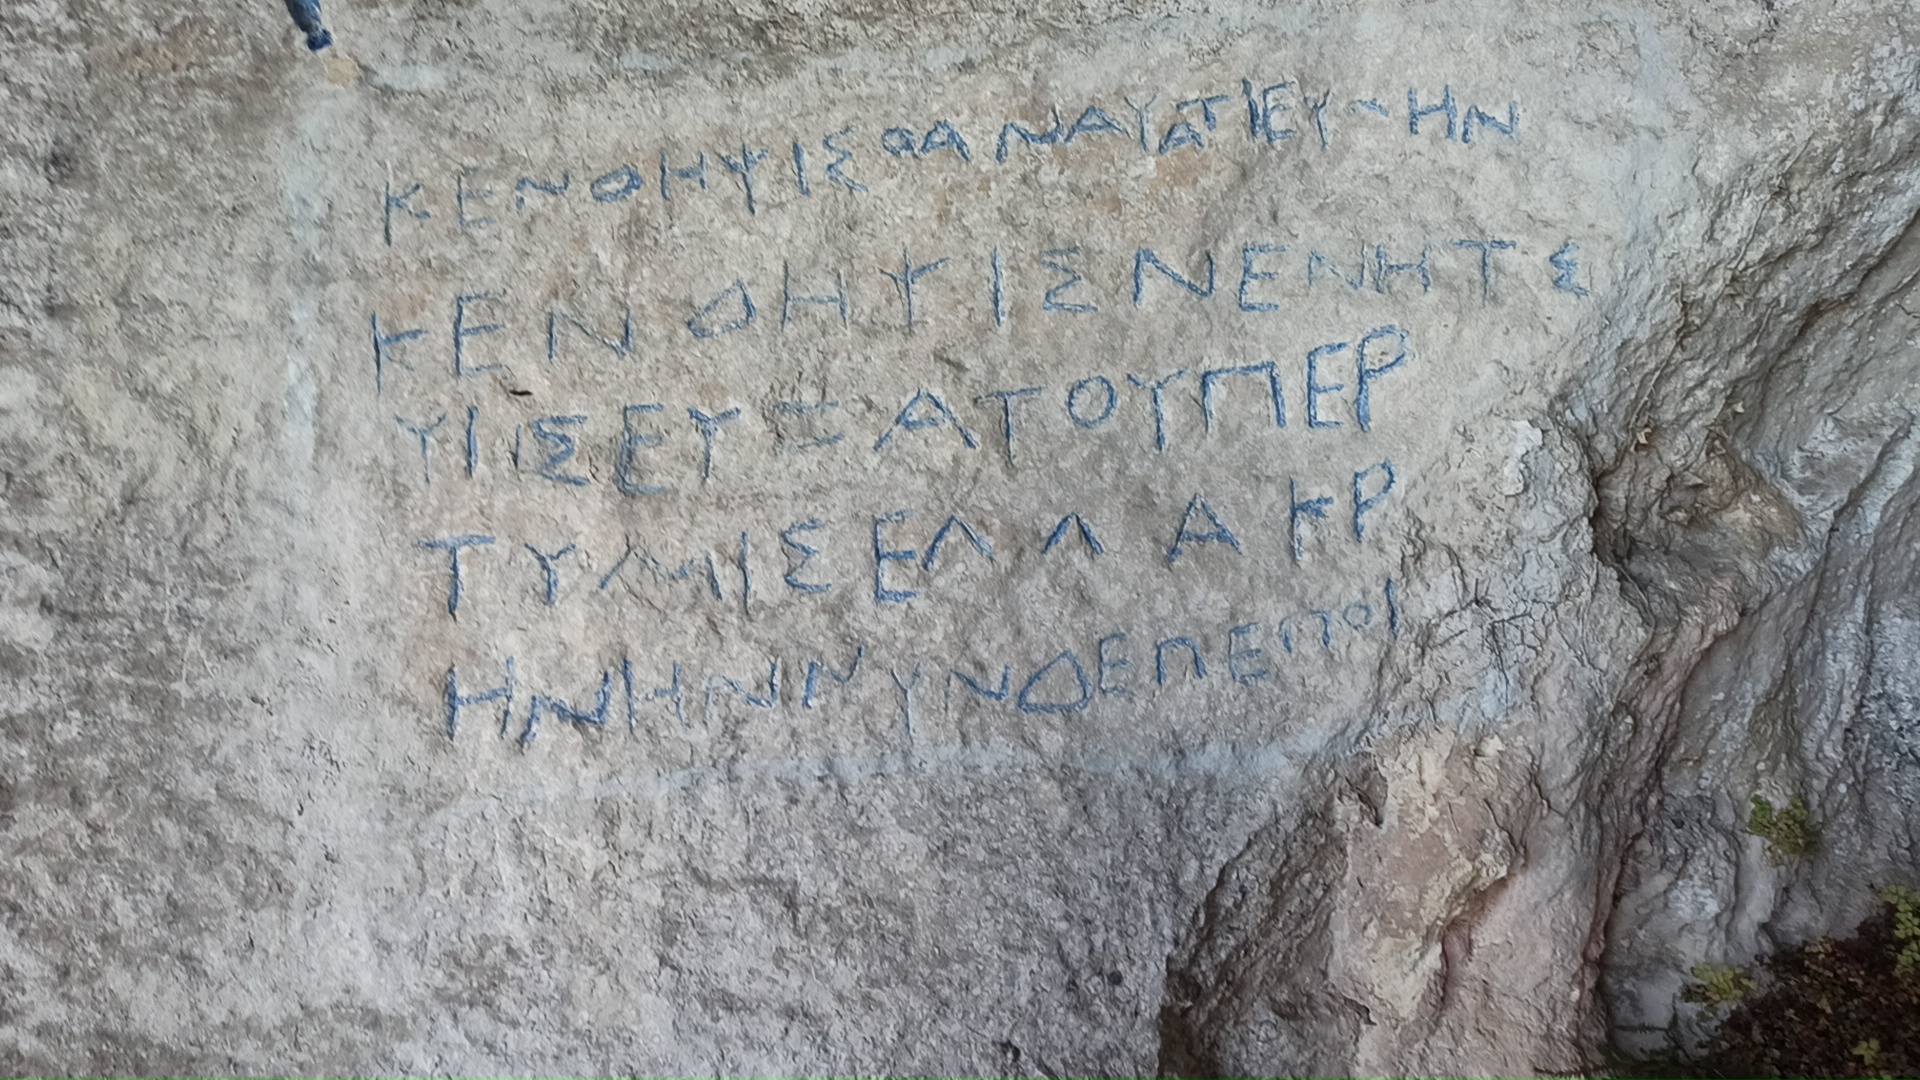 ΚΕΝΘΗΨΙΣΘΑΝΑΥΑΤΙΕΥ~ΗΝ
ΚΕΝΔΗΨΙΣΝΕΝΗΤΣ
ΥΙΙΣΕΥΞΑΤΟΥΠΕΡ
ΤΥΛΛΙΣΕΛΛΑΚΡ
ΗΝΗΝΝΥΝΔΕΠΕΙΠΟΙ